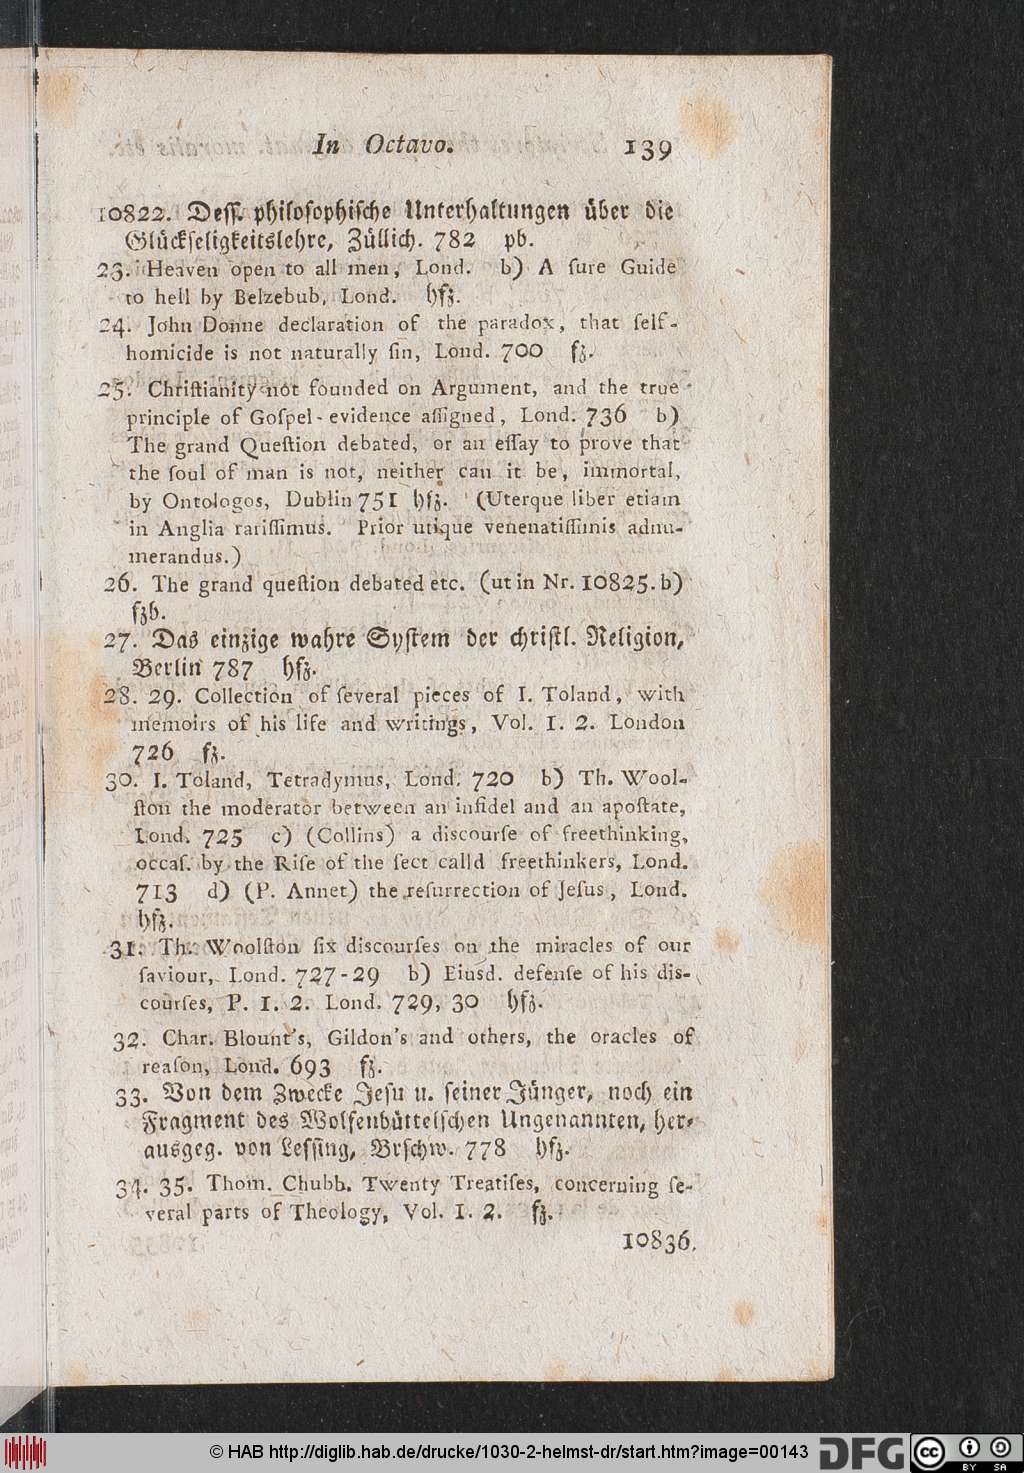 In Octavo. 139
10822. Deſſ. philoſophiſche Unterhaltungen über die
Glückſeligkeitslehre, Züllich. 782 pb.
23. Heaven open to all men, Lond. b) A ſure Guide
to hell by Belzebub, Lond. hfz.
24. John Donne declaration of the paradox, that ſelf-
homicide is not naturally ſin, Lond. 700 fz.
25. Chriſtianity not founded on Argument, and the true
principle of Goſpel-evidence aſſigned, Lond. 736 b)
The grand Queſtion debated, or an eſſay to prove that
the ſoul of man is not, neither can it be, immortal,
by Ontologos, Dublin 751 hfz. (Uterque liber etiam
in Anglia rariſſimus. Prior utique venenatiſſimis adnu-
merandus.)
26. The grand queſtion debated etc. (ut in Nr. 10825. b)
fzb.
27. Das einzige wahre Syſtem der chriſtl. Religion,
Berlin 787 hfz.
28. 29. Collection of ſeveral pieces of I. Toland, with
memoirs of his life and writings, Vol. 1. 2. London
726 fz.
30. I. Toland, Tetradymus, Lond. 720 b) Th. Wool-
ſton the moderator between an infidel and an apoſtate,
Lond. 725 c) (Collins) a discourſe of freethinking,
occaſ. by the Riſe of the ſect calld freethinkers, Lond.
713 d) (P. Annet) the reſurrection of Jeſus, Lond.
hfz.
31. Th. Woolſton ſix discourſes on the miracles of our
ſaviour, Lond. 727-29 b) Eiusd. defenſe of his dis-
courſes, P. 1. 2. Lond. 729, 30 hfz.
32. Char. Blount's, Gildon's and others, the oracles of
reaſon, Lond. 693 fz.
33. Von dem Zwecke Jeſu u. ſeiner Jünger, noch ein
Fragment des Wolfenbüttelſchen Ungenannten, her-
ausgeg. von Leſſing, Brſchw. 778 hfz.
34. 35. Thom. Chubb. Twenty Treatiſes, concerning ſe-
veral parts of Theology, Vol. 1. 2. fz.
10836.
© HAB http://diglib.hab.de/drucke/1030-2-helmst-dr/start.htm?image=00143 DFG cc BY SA